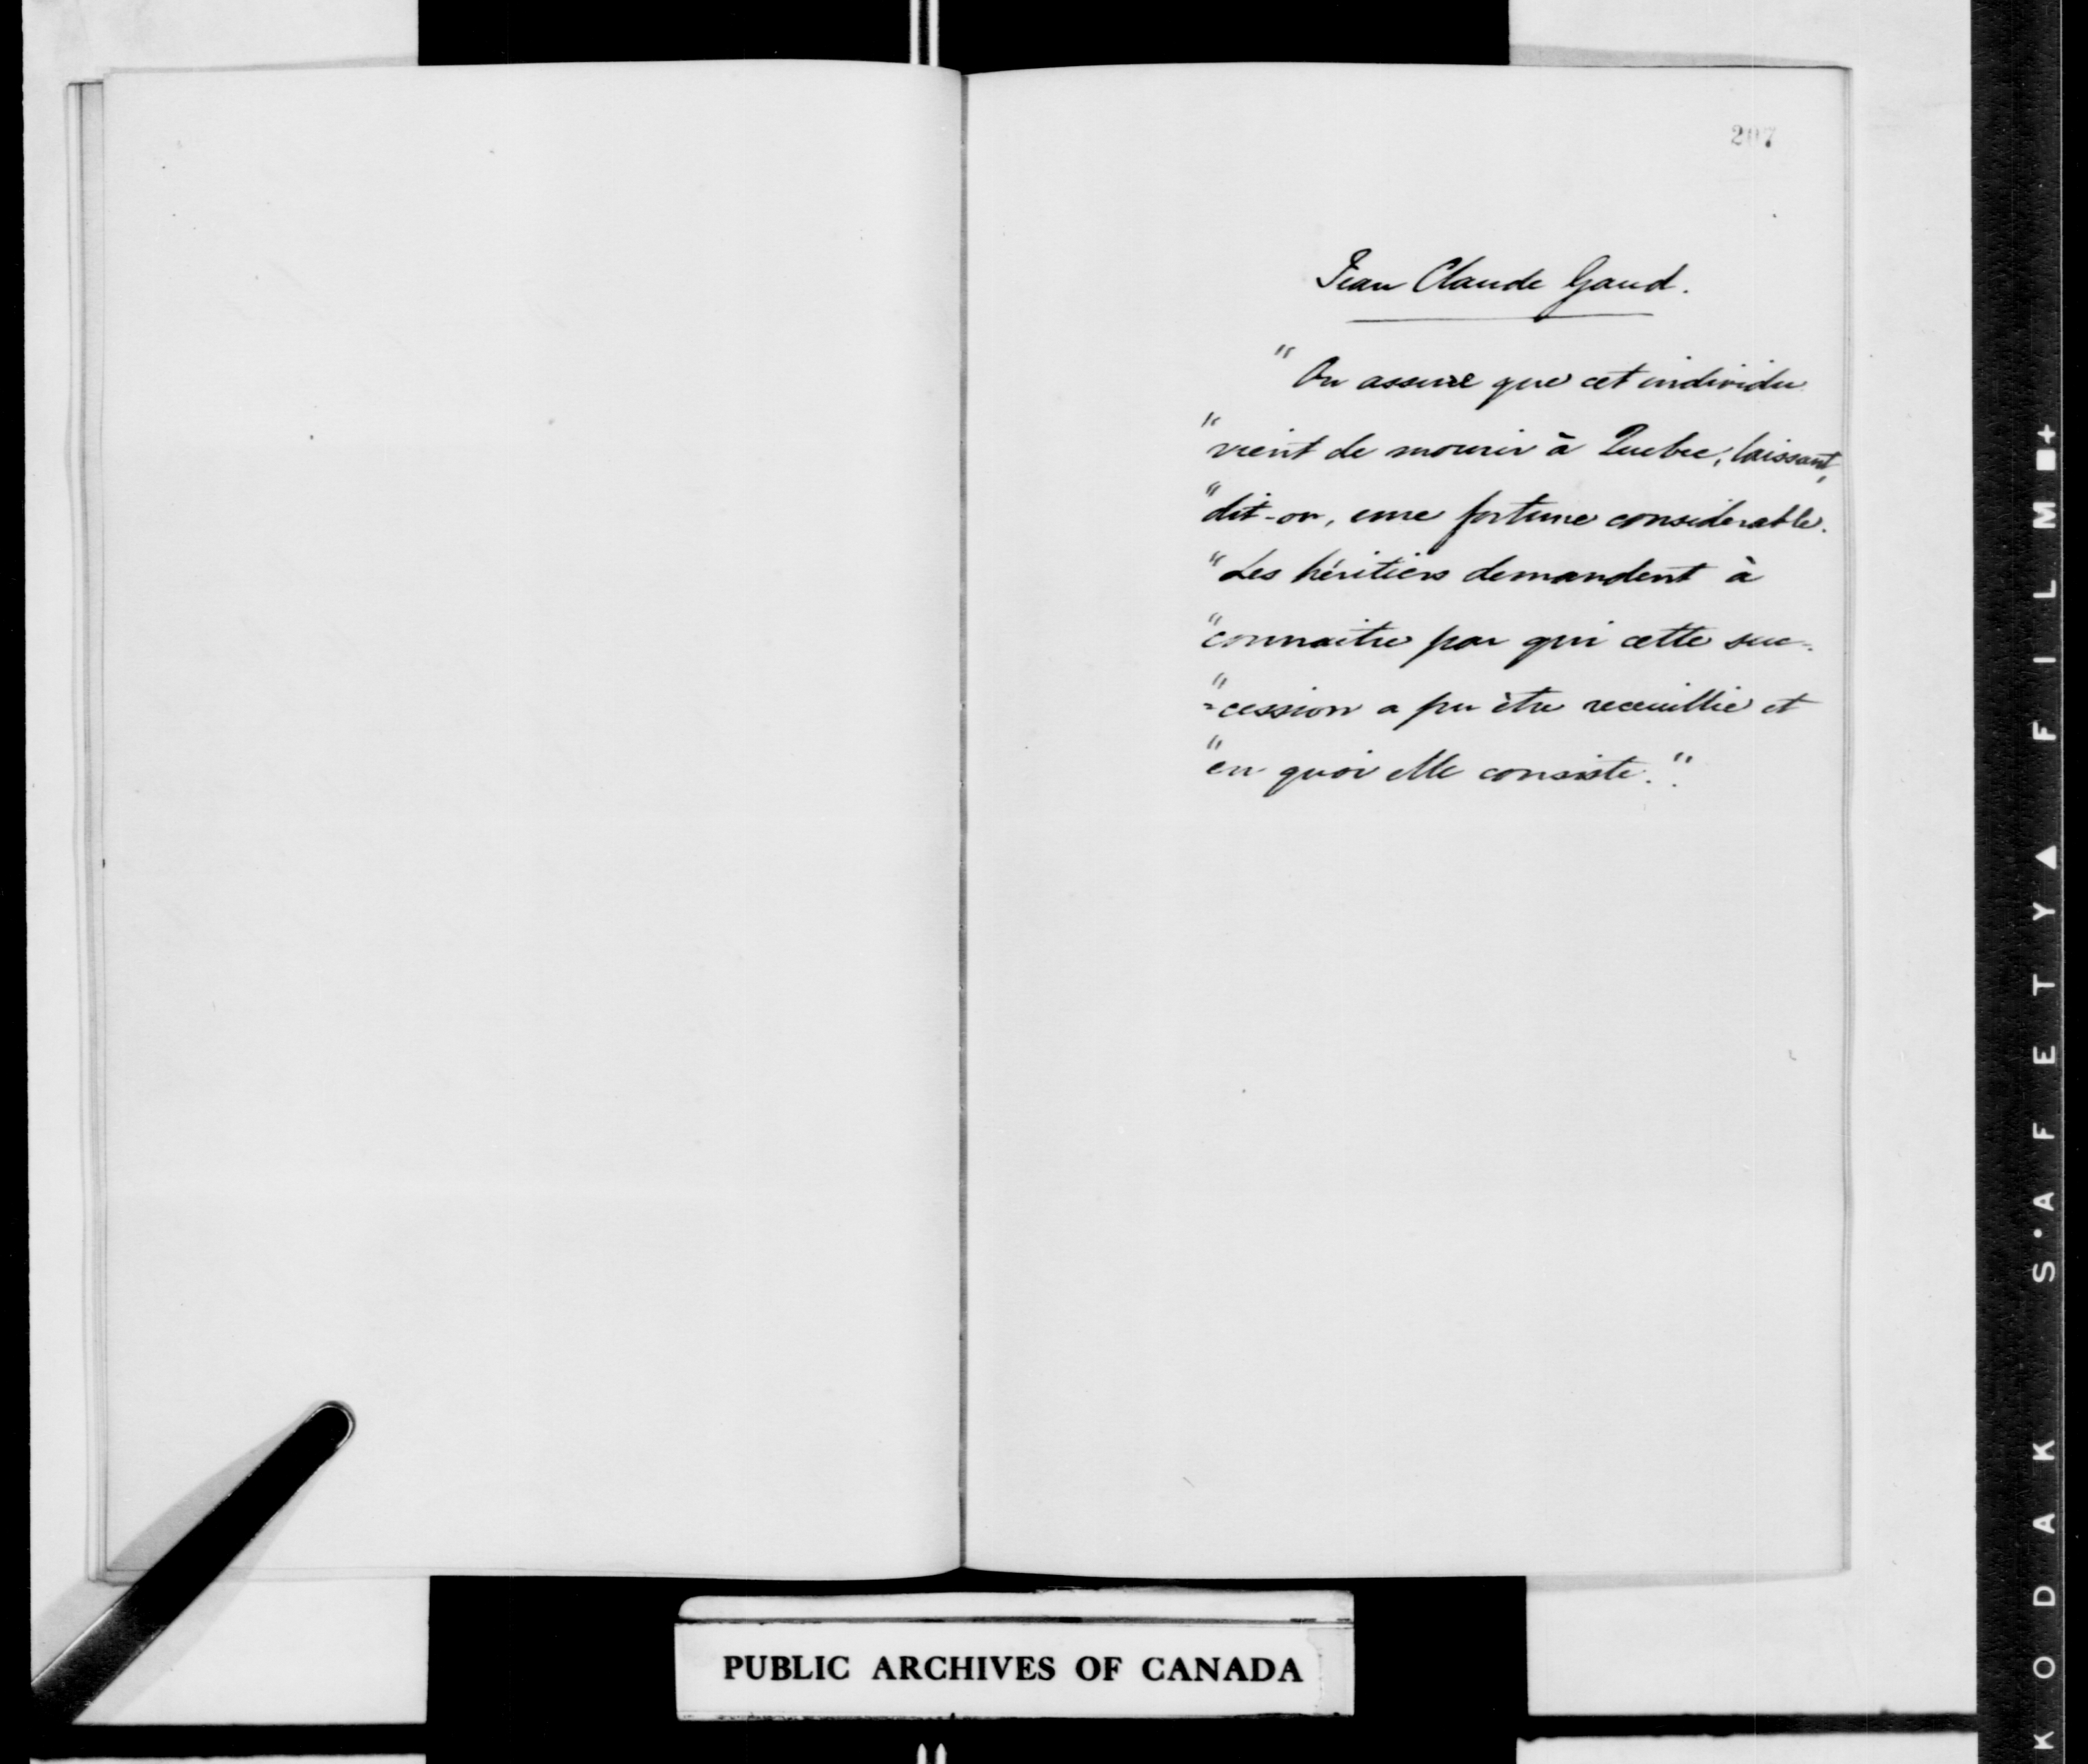 207
Jean Claude Gaud.
" On assure que cet individu
" vient de mourir à Quebec, laissant,
" dit-on, une fortune considerable.
" Les héritiers demandent à
" connaitre par qui cette suc-
" =cession a pu être receuillie et
" en quoi elle consiste."
PUBLIC ARCHIVES OF CANADA
KODAK S·AFETY▲ FILM ■+